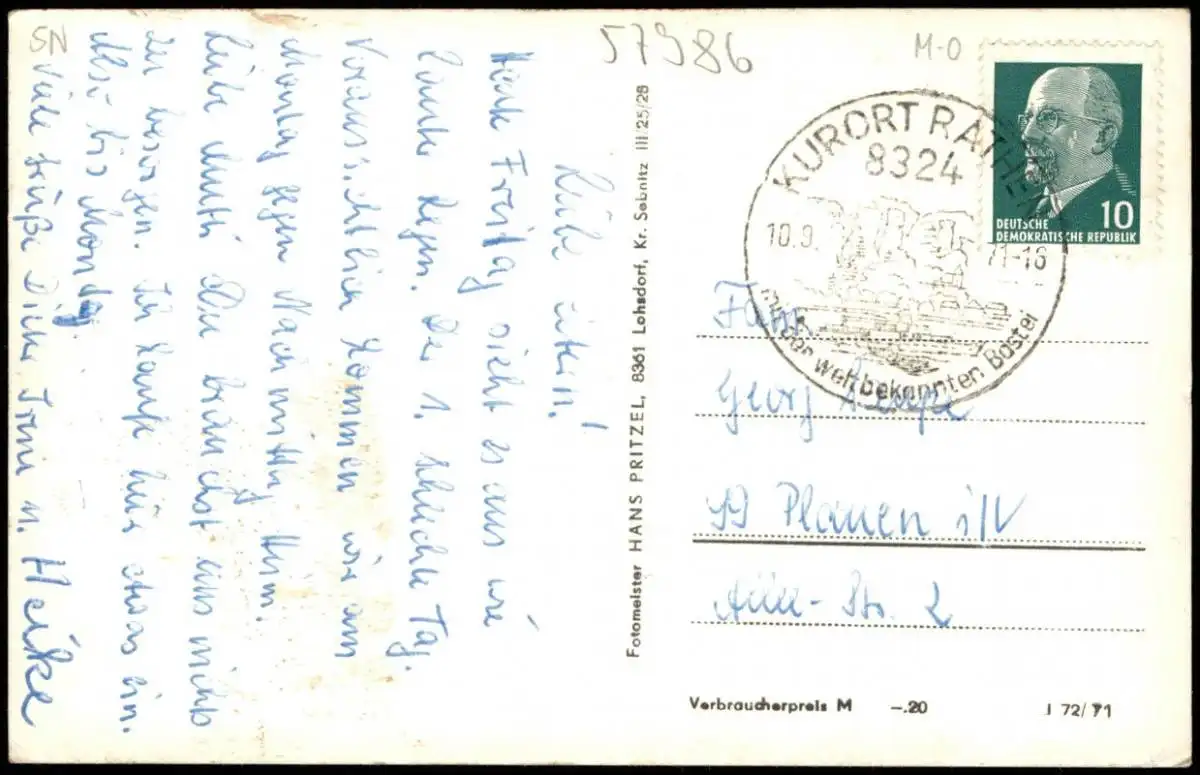 57986
M-O
SN
Liebe Eltern!
Heute Freitag sieht es aus wie
lauter Regen. Der 1. schlechte Tag.
Voraussichtlich kommen wir am
Montag gegen Nachmittag Heim.
Liebe Mutti Du brauchst uns nichts
zu besorgen. Ich kaufe hier etwas ein.
Also bis Montag.
Viele Grüße Dicke Irene u. Heike
Fotomeister HANS PRITZEL, 8361 Lohsdorf, Kr. Sebnitz III/25/28
KURORT RATHEN
8324
10.9.
71-16
mit der weltbekannten Bastei
DEUTSCHE
DEMOKRATISCHE REPUBLIK
10
Fam.
Georg
99 Plauen i/V
Str. 2
Verbraucherpreis M -.20
J 72/71